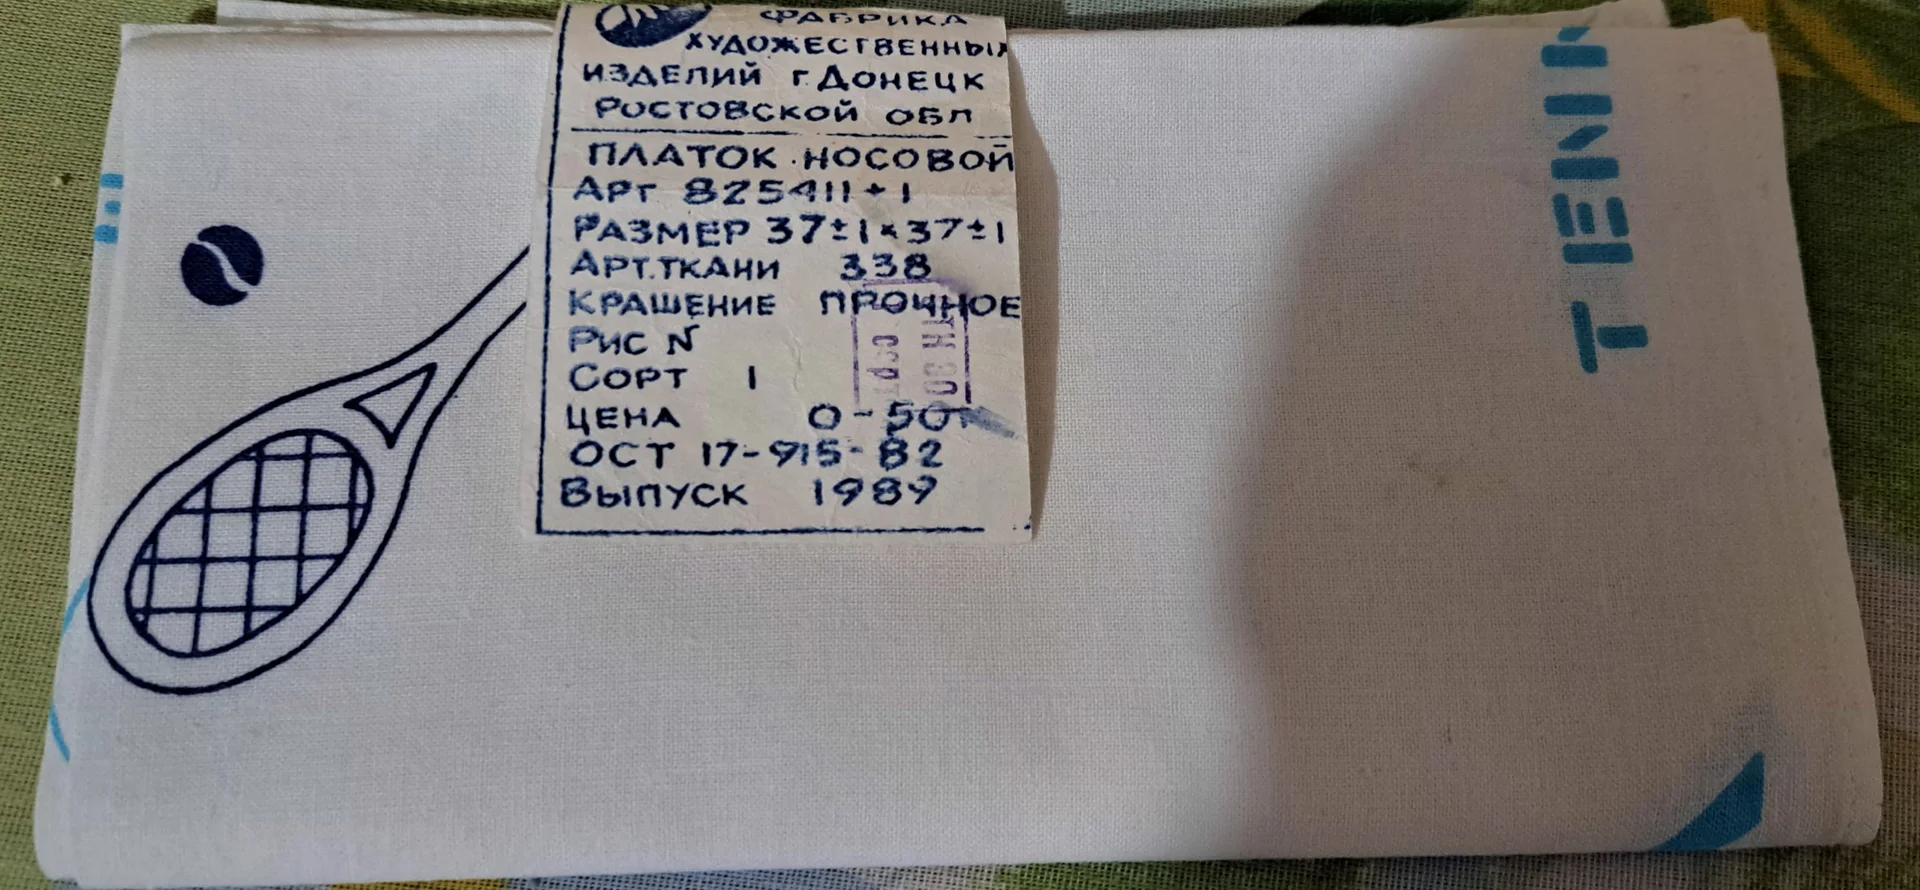 ФАБРИКА
ХУДОЖЕСТВЕННЫХ
ИЗДЕЛИЙ г. ДОНЕЦК
РОСТОВСКОЙ ОБЛ
ПЛАТОК НОСОВОЙ
АРТ 825411+1
РАЗМЕР 37±1×37±1
АРТ.ТКАНИ 338
КРАШЕНИЕ ПРОЧНОЕ
РИС N
СОРТ 1
ЦЕНА 0-50
ОСТ 17-915-82
ВЫПУСК 1989
TENN